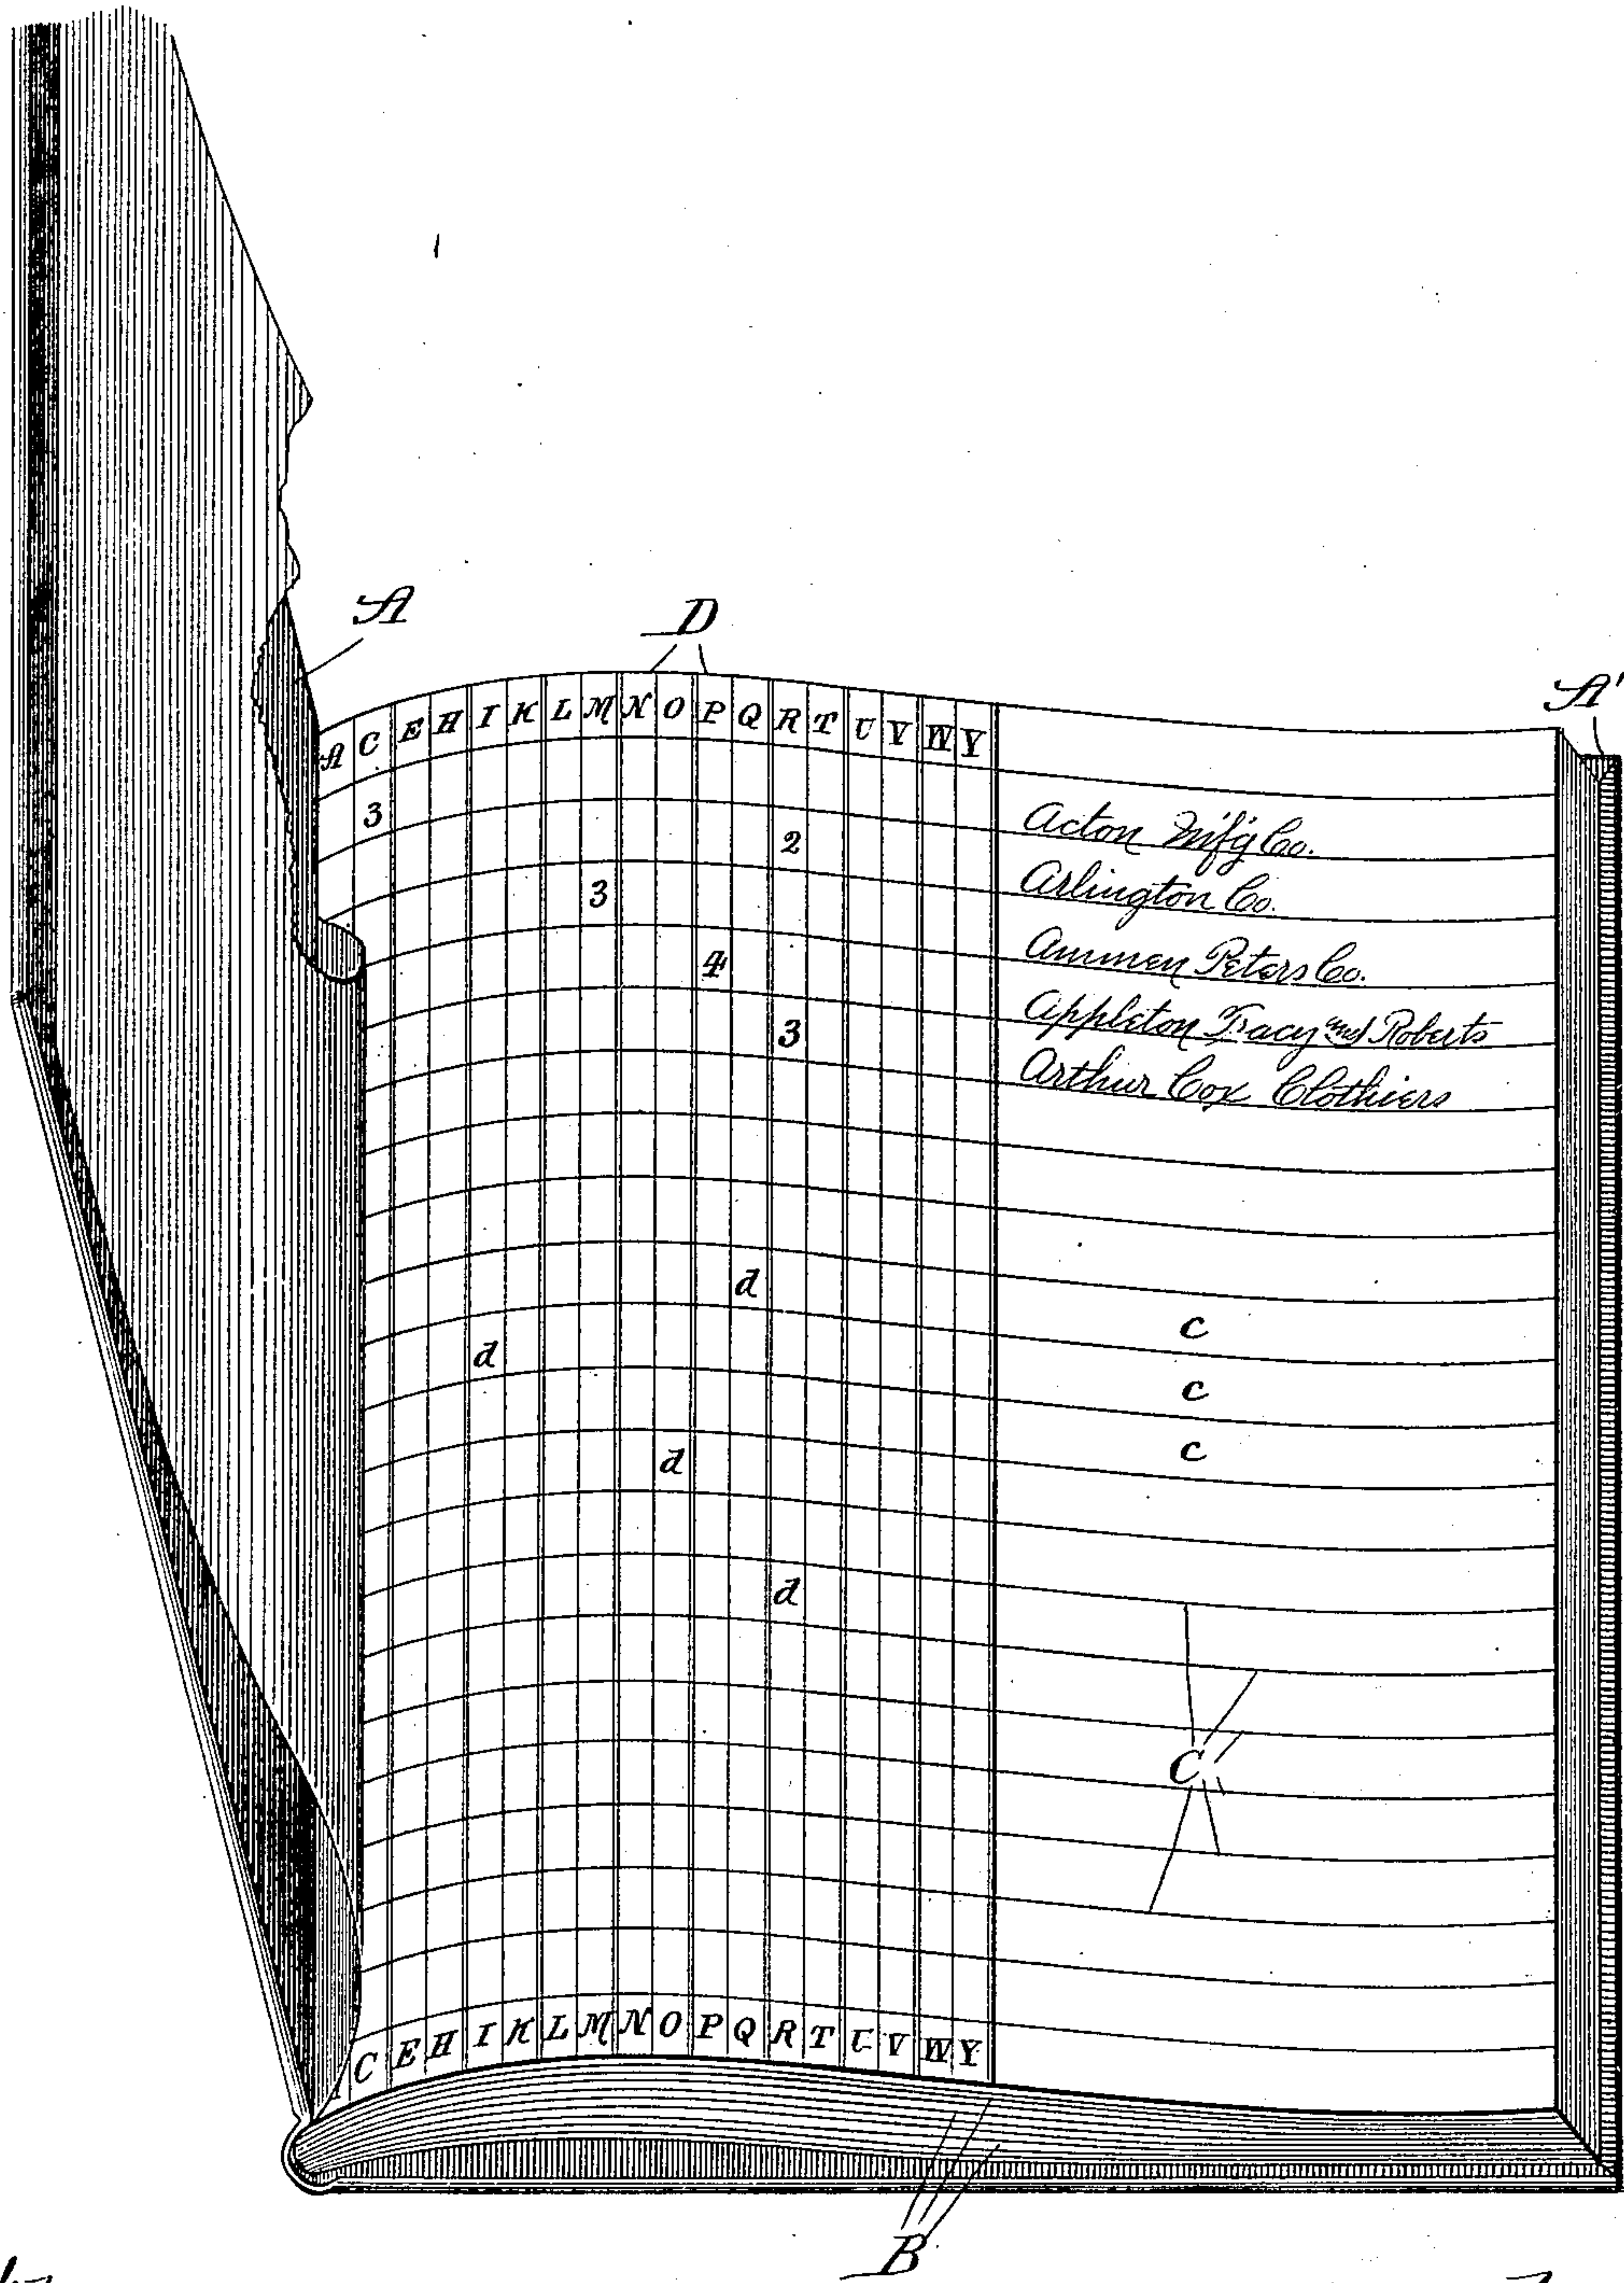 A
D
A'
A C E H I K L M N O P Q R T U V W Y
3 Acton M'f'g Co.
2 Arlington Co.
3 Ammen Peters Co.
4 Appleton Tracy and Roberts
3 Arthur Cox Clothiers
d c
d c
d c
d
C
C E H I K L M N O P Q R T U V W Y
B